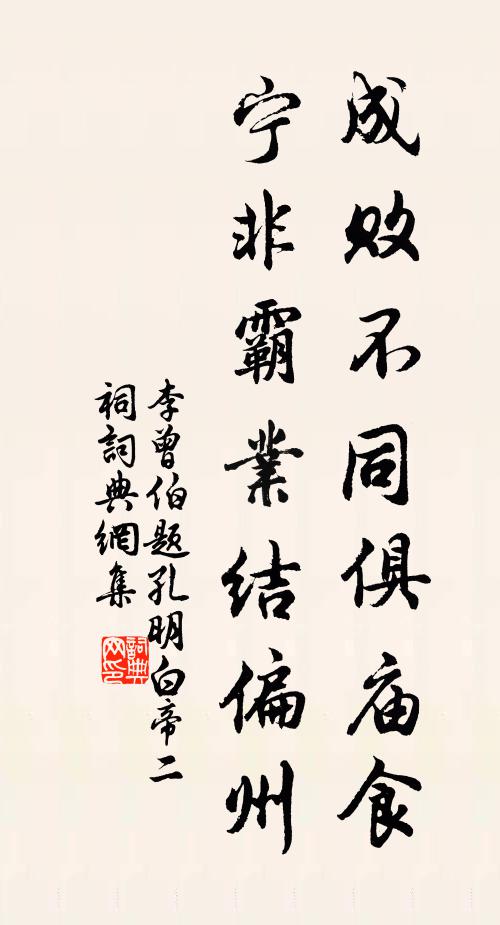 成敗不同俱庙食
宁非霸業结偏州
李曾伯题孔明白帝二
祠詞典網集
詞典网印